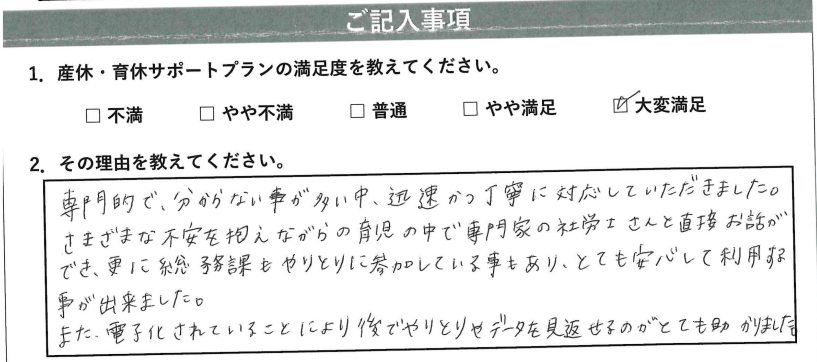 ご記入事項
1. 産休・育休サポートプランの満足度を教えてください。
□ 不満 □ やや不満 □ 普通 □ やや満足 ☑ 大変満足
2. その理由を教えてください。
専門的で、分からない事が多い中、迅速かつ丁寧に対応していただきました。
さまざまな不安を抱えながらの育児の中で専門家の社労士さんと直接お話が
でき、更に総務課もやりとりに参加している事もあり、とても安心して利用する
事が出来ました。
また、電子化されていることにより後でやりとりやデータを見返せるのがとても助かりました。